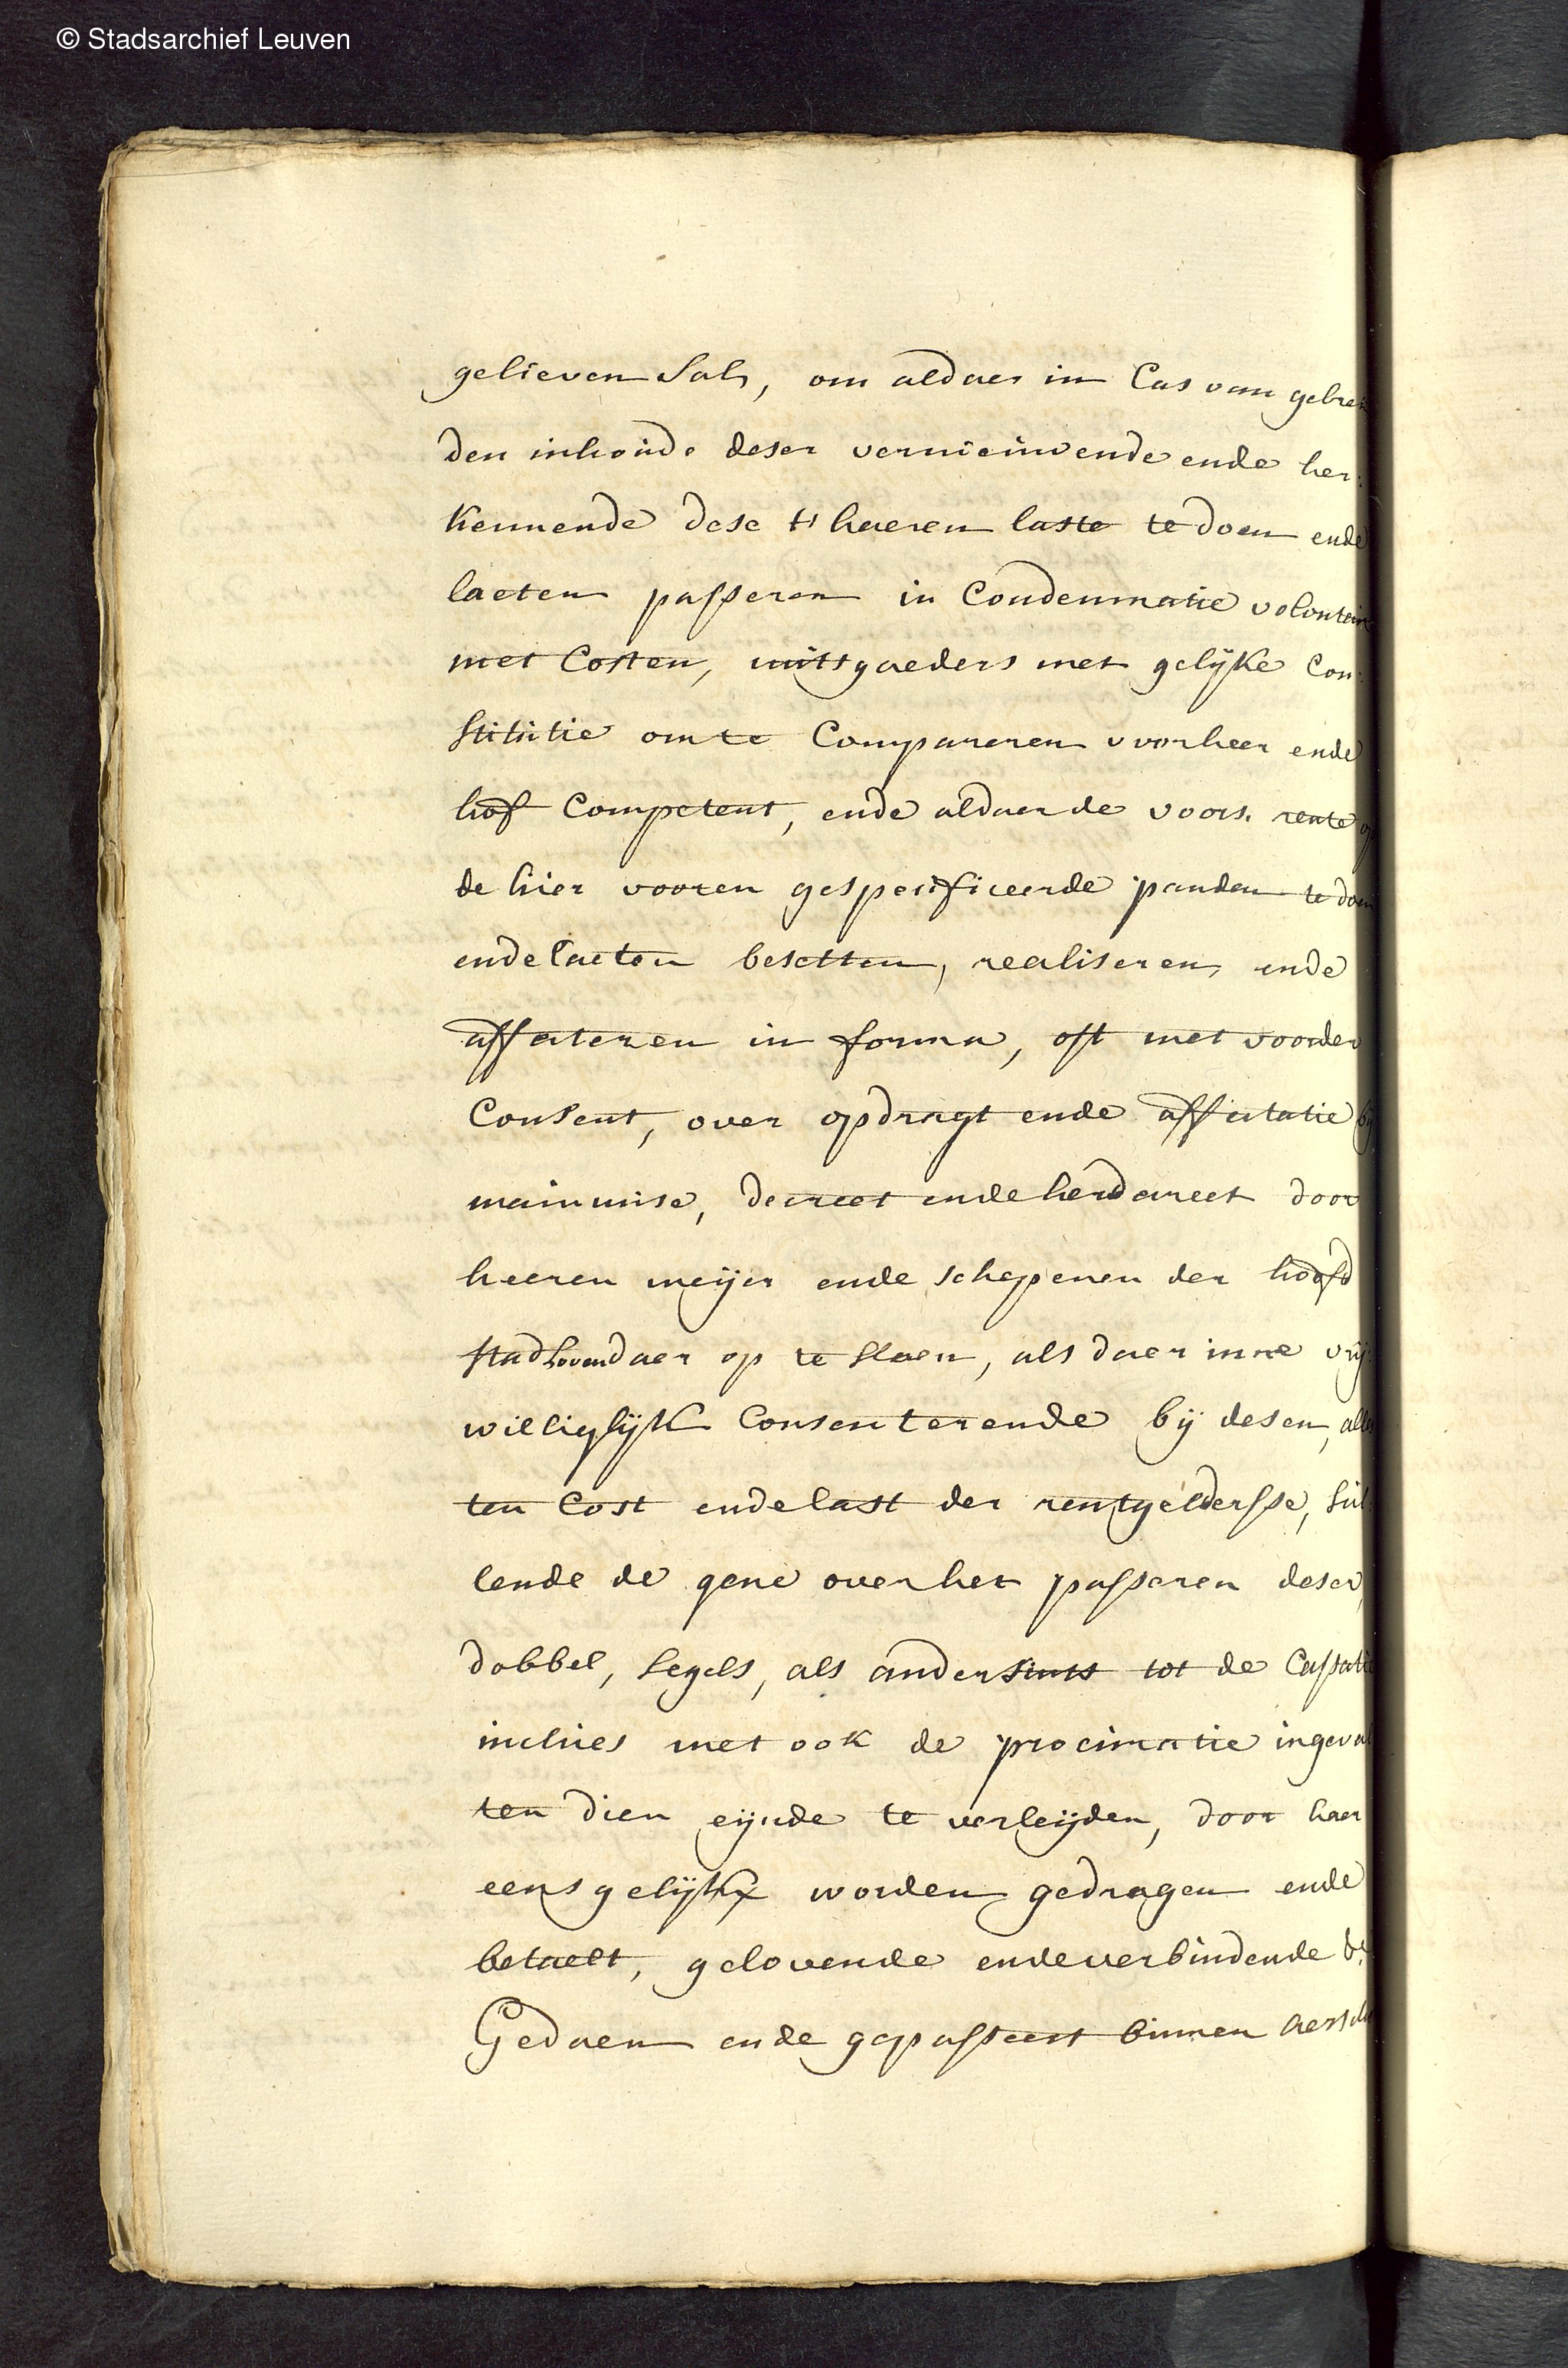 © Stadsarchief Leuven
gelieven sal, om aldaer in Cas van gebre
den inhoude deser vernieuwende ende her:
kennende dese t' haeren laste te doen ende
laeten passeren in Condemnatie volontair
met Costen, mitsgaeders met gelijke Con:
stitutie om te Compareren voor heer ende
hof Competent, ende aldaer de voors. rente op
de hier vooren gespecificeerde panden te doen
ende laeten besetten, realiseren, ende
affecteren in forma, oft met voorder
Consent, over opdragt ende affectatie bij
mainmise, decreet ende herdecreet door
heeren meijer ende schepenen der hoofd
stad Loven daer op te slaen, als daer inne vrij:
williglijk Consenterende bij desen, alles
ten Cost ende last der rentgeldersse, sul
lende de gene over het passeren deser,
dobbel, segels, als andersints tot de Cassatie
incluies met ook de procuratie ingeval
ten dien eijnde te verleijden, door haer
eensgelijkx worden gedragen ende
betaelt, gelovende ende verbindende
Gedaen ende gepasseert binnen Aersch